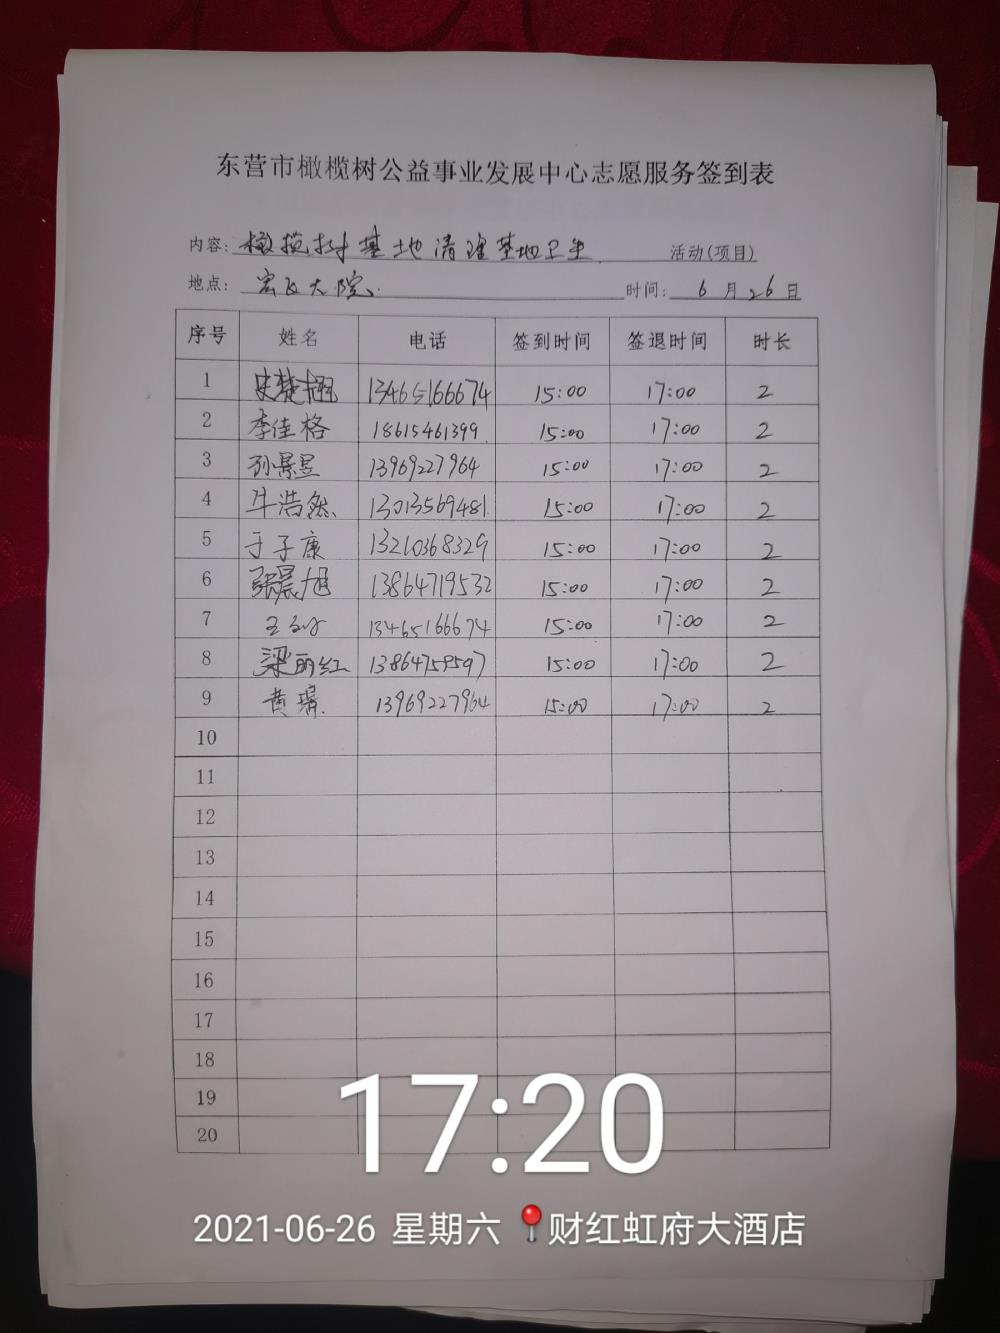 东营市橄榄树公益事业发展中心志愿服务签到表
内容: 橄榄树基地清理基地卫生 活动(项目)
地点: 宏飞大院 时间: 6 月 26 日
序号 姓名 电话 签到时间 签退时间 时长
1 史楚 13465166674 15:00 17:00 2
2 李佳格 18615461399 15:00 17:00 2
3 孙景昱 13969227964 15:00 17:00 2
4 牛浩然 13013569481 15:00 17:00 2
5 于子康 13210368329 15:00 17:00 2
6 张晨旭 13864719532 15:00 17:00 2
7 13465166674 15:00 17:00 2
8 梁丽红 13864759597 15:00 17:00 2
9 黄 13969227964 15:00 17:00 2
10
11
12
13
14
15
16
17
18
19
20
17:20
2021-06-26 星期六 财红虹府大酒店